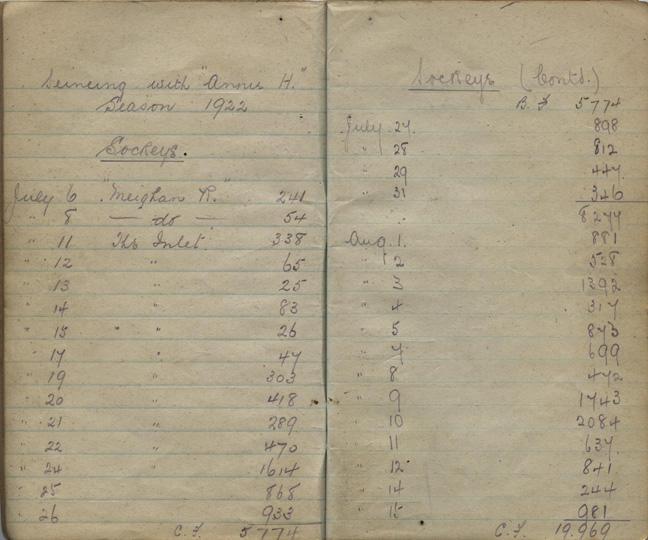 Seineing with "Annie H."
Season 1922
Sockeys.
July 6 "Meighan R." 241
" 8 — do — 54
" 11 Inlet. 338
" 12 " 65
" 13 " 25
" 14 " 83
" 15 " " 26
" 17 " 47
" 19 " 303
" 20 " 418
" 21 " 289
" 22 " 470
" 24 " 1614
" 25 " 868
" 26 " 933
C.F. 5774
Sockeys (Contd.)
B.F 5774
July 27. 898
" 28 812
" 29 447
" 31 346
8277
Aug. 1. 881
" 2 528
" 3 1392
" 4 317
" 5 873
" 7 699
" 8 472
" 9 1743
" 10 2084
" 11 637
" 12 841
" 14 244
" 15 981
C.F. 19.969